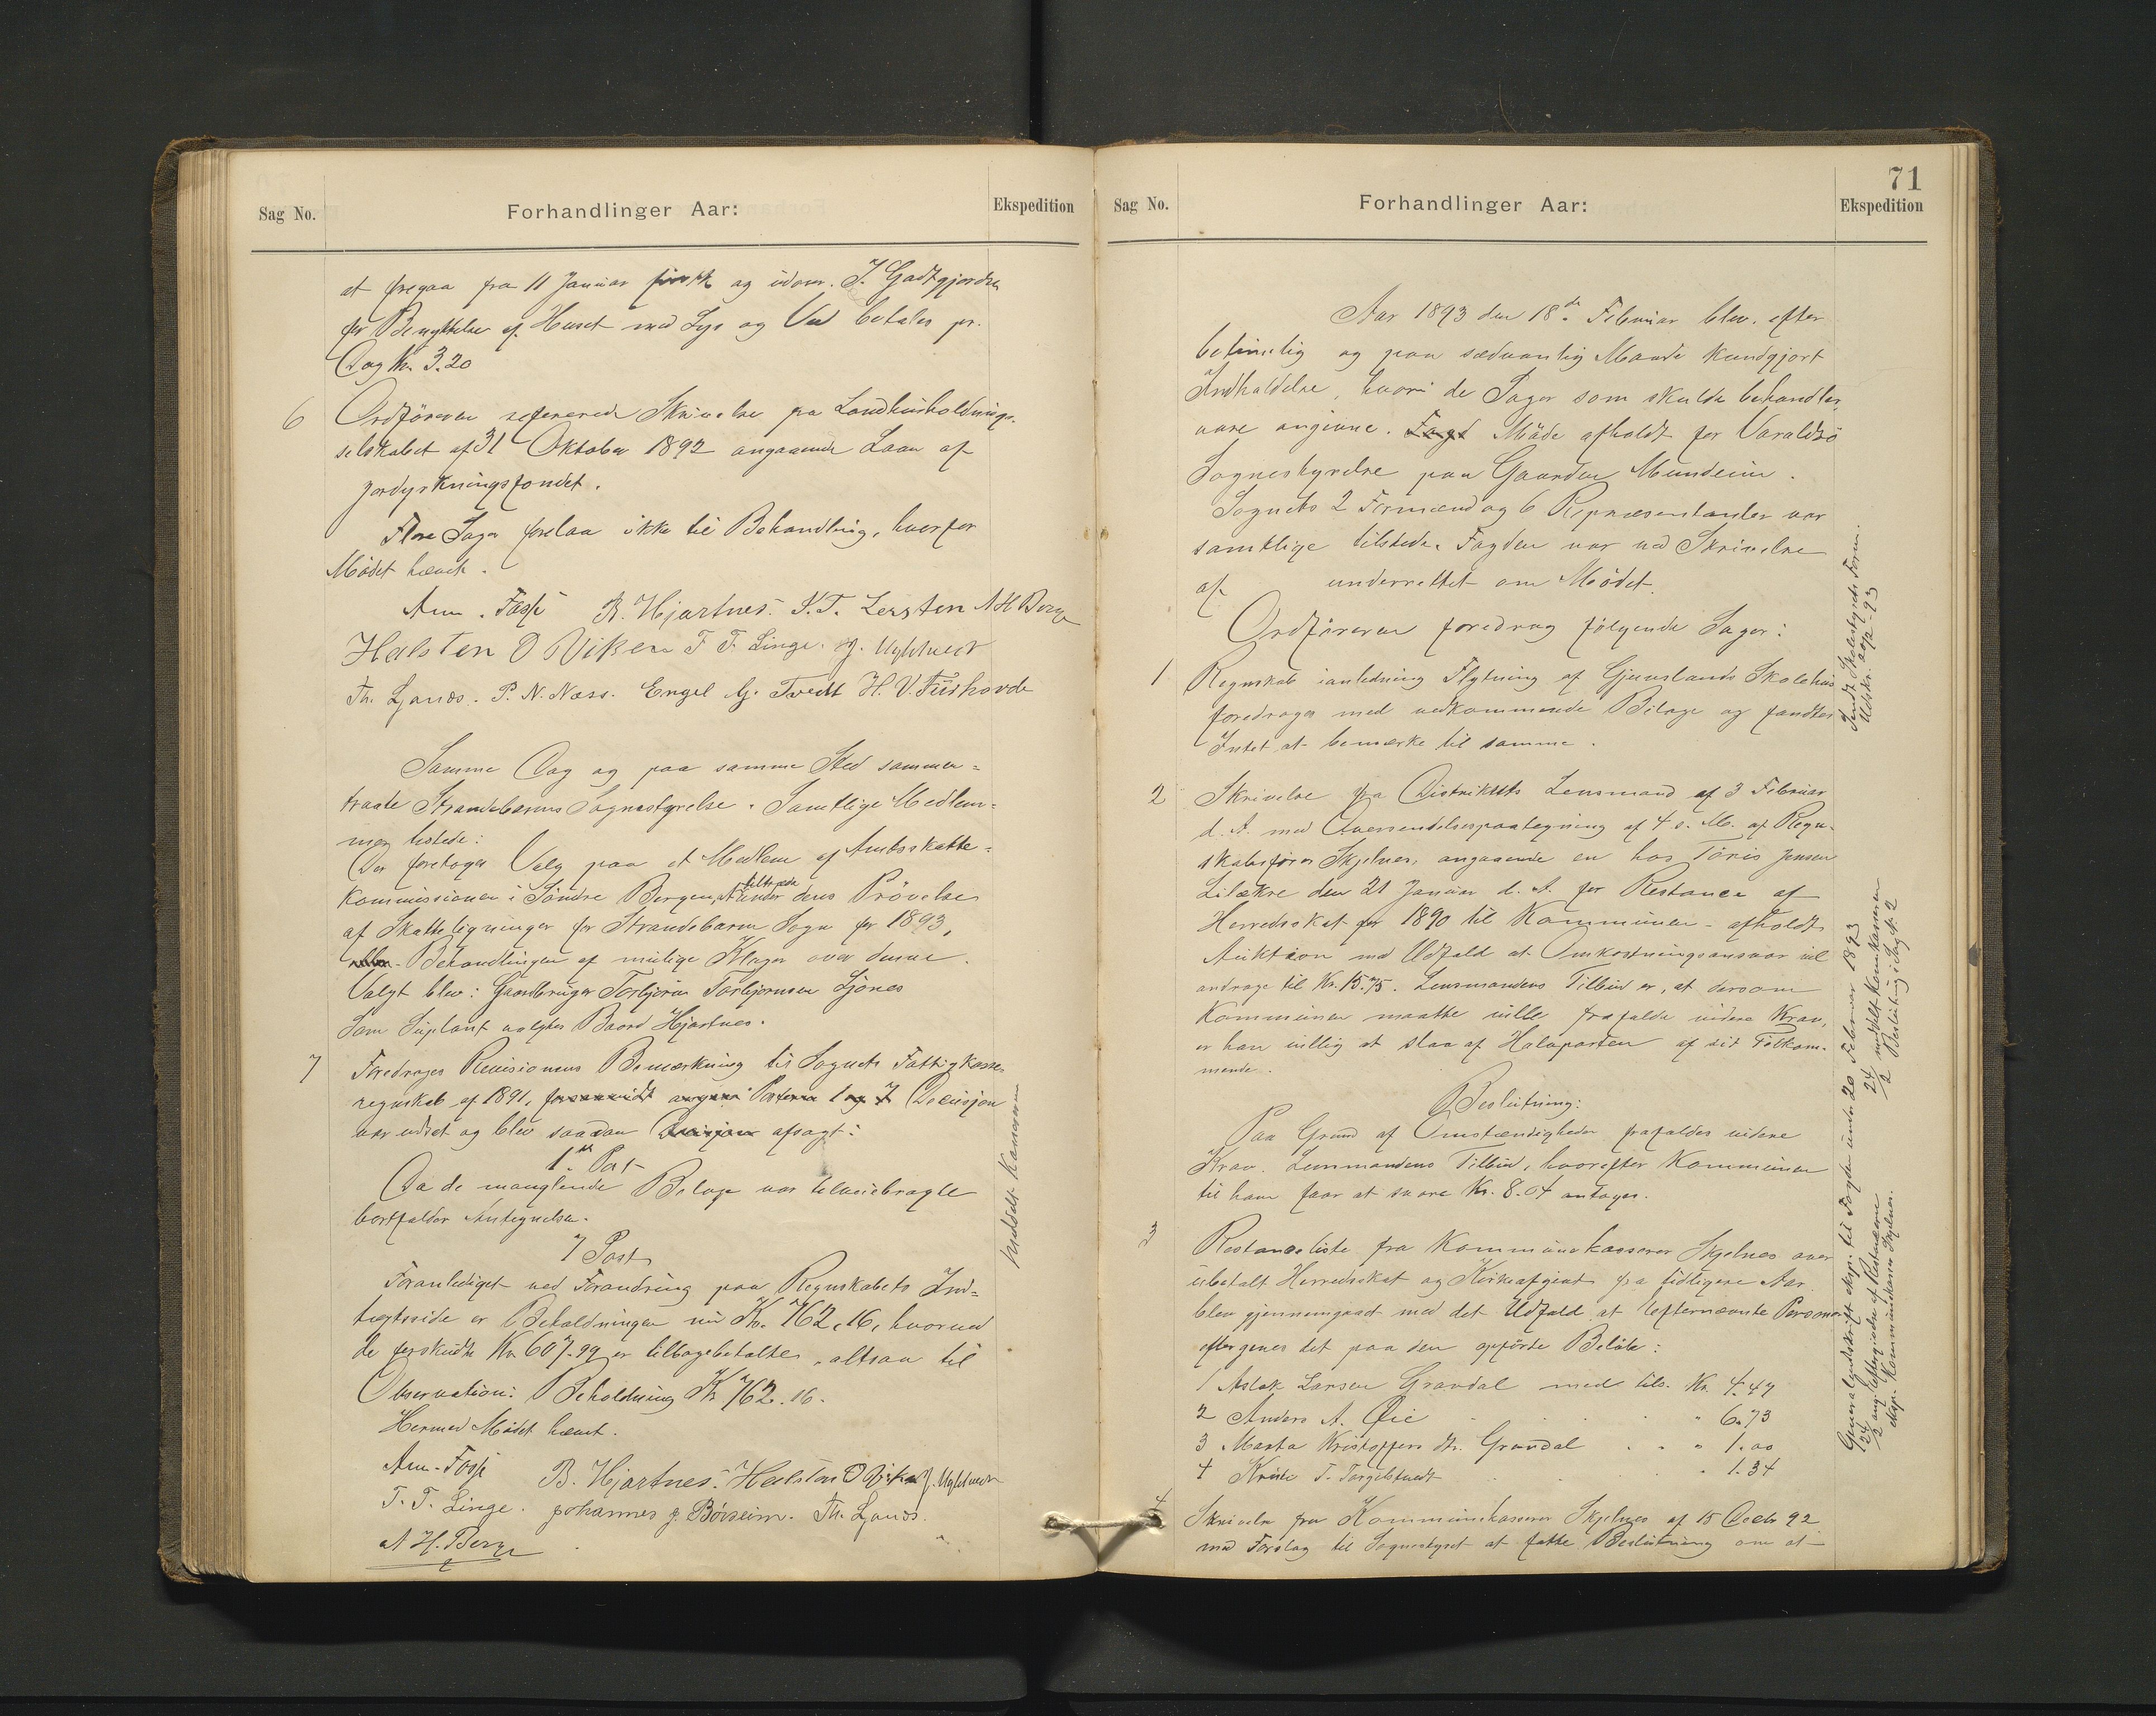 Sag No.
Forhandlinger Aar:
Ekspedition
at foregaa fra 11 Januar og idom. J. Gadtgjordsn
for Benyttelse af Huset med Lys og Ved betales pr.
Dag Kr. 3.20
6 Ordföreren refererede Skrivelse fra Landhusholdnings-
selskabet af 31 Oktober 1892 angaaende Laan af
Jordyrkningsfondet.
Flere Sager forelaa ikke til Behandling, hvorfor
Mödet hævet.
Am. Fosse B. Hjartnes. K.T. Lersten A H Berge
Halsten O Viken T T. Linge. J. Uglhvedt
Th. Ljonés. P. N. Næss. Engel G. Tvedt H. V. Fuskovde
Samme Dag og paa samme Sted sammen-
traate Strandebarms Sognestyrelse. Samtlige Medlem-
mer tilstede:
Der foretoges Valg paa et Medlem af Amtsskatte-
kommissionen i Söndre Bergenh. tiltræde under dens Prövelse
af Skatteligninger for Strandebarm Sogn for 1893,
Behandlingen af mulige Klager over denne.
Valgt blev: Gaardbruger Torbjörn Torbjörnsen Ljönes
Som Suplant valgtes Baard Hjartnes.
7 Foredroges Revisionens Bemærkning til Sognets Fattigkasse-
regnskab af 1891, forsaavidt angaar Posterne 1 og 7 Decisjon
var udsat og blev saadan Decisjon afsagt:
1ste Post
Da de manglende Bilage var tilveiebragte
bortfalder Antegnelsen.
7 Post
Foranlediget ved Forandring paa Regnskabets Ind-
tægtsside er Beholdningen nu Kr. 762,16, hvorved
de forskudte Kr. 607.99 er tilbagebetalte, altsaa til
Observation: Beholdning Kr. 762.16.
Hermed Mödet hævet.
Am. Fosse B. Hjartnes. Halsten O Viken J. Uglhvedt
T. T. Linge. Johannes J. Börseim. Th. Ljonés.
A H. Berge
Meddelt Kassereren
71
Sag No.
Forhandlinger Aar:
Ekspedition
Aar 1893 den 18de Februar blev efter
betimelig og paa sædvanlig Maade kundgjort
Indkaldelse, hvori de Sager som skulde behandles,
vare angivne. Möde afholdt for Varaldsö
Sognestyrelse paa Gaarden Mundeim.
Sognets 2 Formænd og 6 Repræsentanter var
samtlige tilstede. Fogden var ved Skrivelse
af underrettet om Mödet.
Ordföreren foredrog fölgende Sager:
1 Regnskab ianledning Flytning af Gjuuslands Skolehus
foredroges med vedkommende Bilage og fandtes
Intet at bemærke til samme.
2 Skrivelse fra Distriktets Lensmand af 3 Februar
d. A. med Oversendelsespaategning af 4 s. M. af Regn-
skabsförer Skjelnes, angaaende en hos Töris Jensen
Lilækre den 21 Januar d. A. for Restance af
Herredsskat for 1890 til Kommunen - afholdt
Auktion med Udfald at Omkostningsansvar vil
andrage til Kr. 15.75. Lensmandens Tilbud er, at dersom
Kommunen maatte ville frafalde videre Krav,
er han villig at slaa af Halvparten af sit Tilkom-
mende.
Beslutning:
Paa Grund af Omstændigheder frafaldes videre
Krav. Lensmandens Tilbud, hvorefter Kommunen
til ham faar at svare Kr. 8.04 antages.
3 Restanceliste fra Kommunekasserer Skjelnes over
ubetalt Herredsskat og Kirkeafgivt fra tidligere Aar
blev gjennemgaaet med det Udfald at efternævnte Personer
eftergives det paa dem opförte Belöb:
1 Aslak Larsen Gravdal med tils. Kr. 4.47
2 Anders A. Øie . . . . " 6.73
3 Marta Kristoffers Dr. Gravdal . . " 1.00
4 Kriste T. Torgilstvedt . . . " 1.34
4 Skrivelse fra Kommunekasserer Skjelnes af 15 Decbr 92
med Forslag til Sognestyret at fatte Beslutning om at
Sendt Skolestyrets Form.
Udskr. 20/2-93
Generaludskrift eksp. til Fogden under 20 Februar 1893
24/2 meddelt Kom.kassereren Beslutning i Sag N. 2
24/2 ang. eftergivelse af Restancerne
eksp. Kommunekasserer Skjelnes.